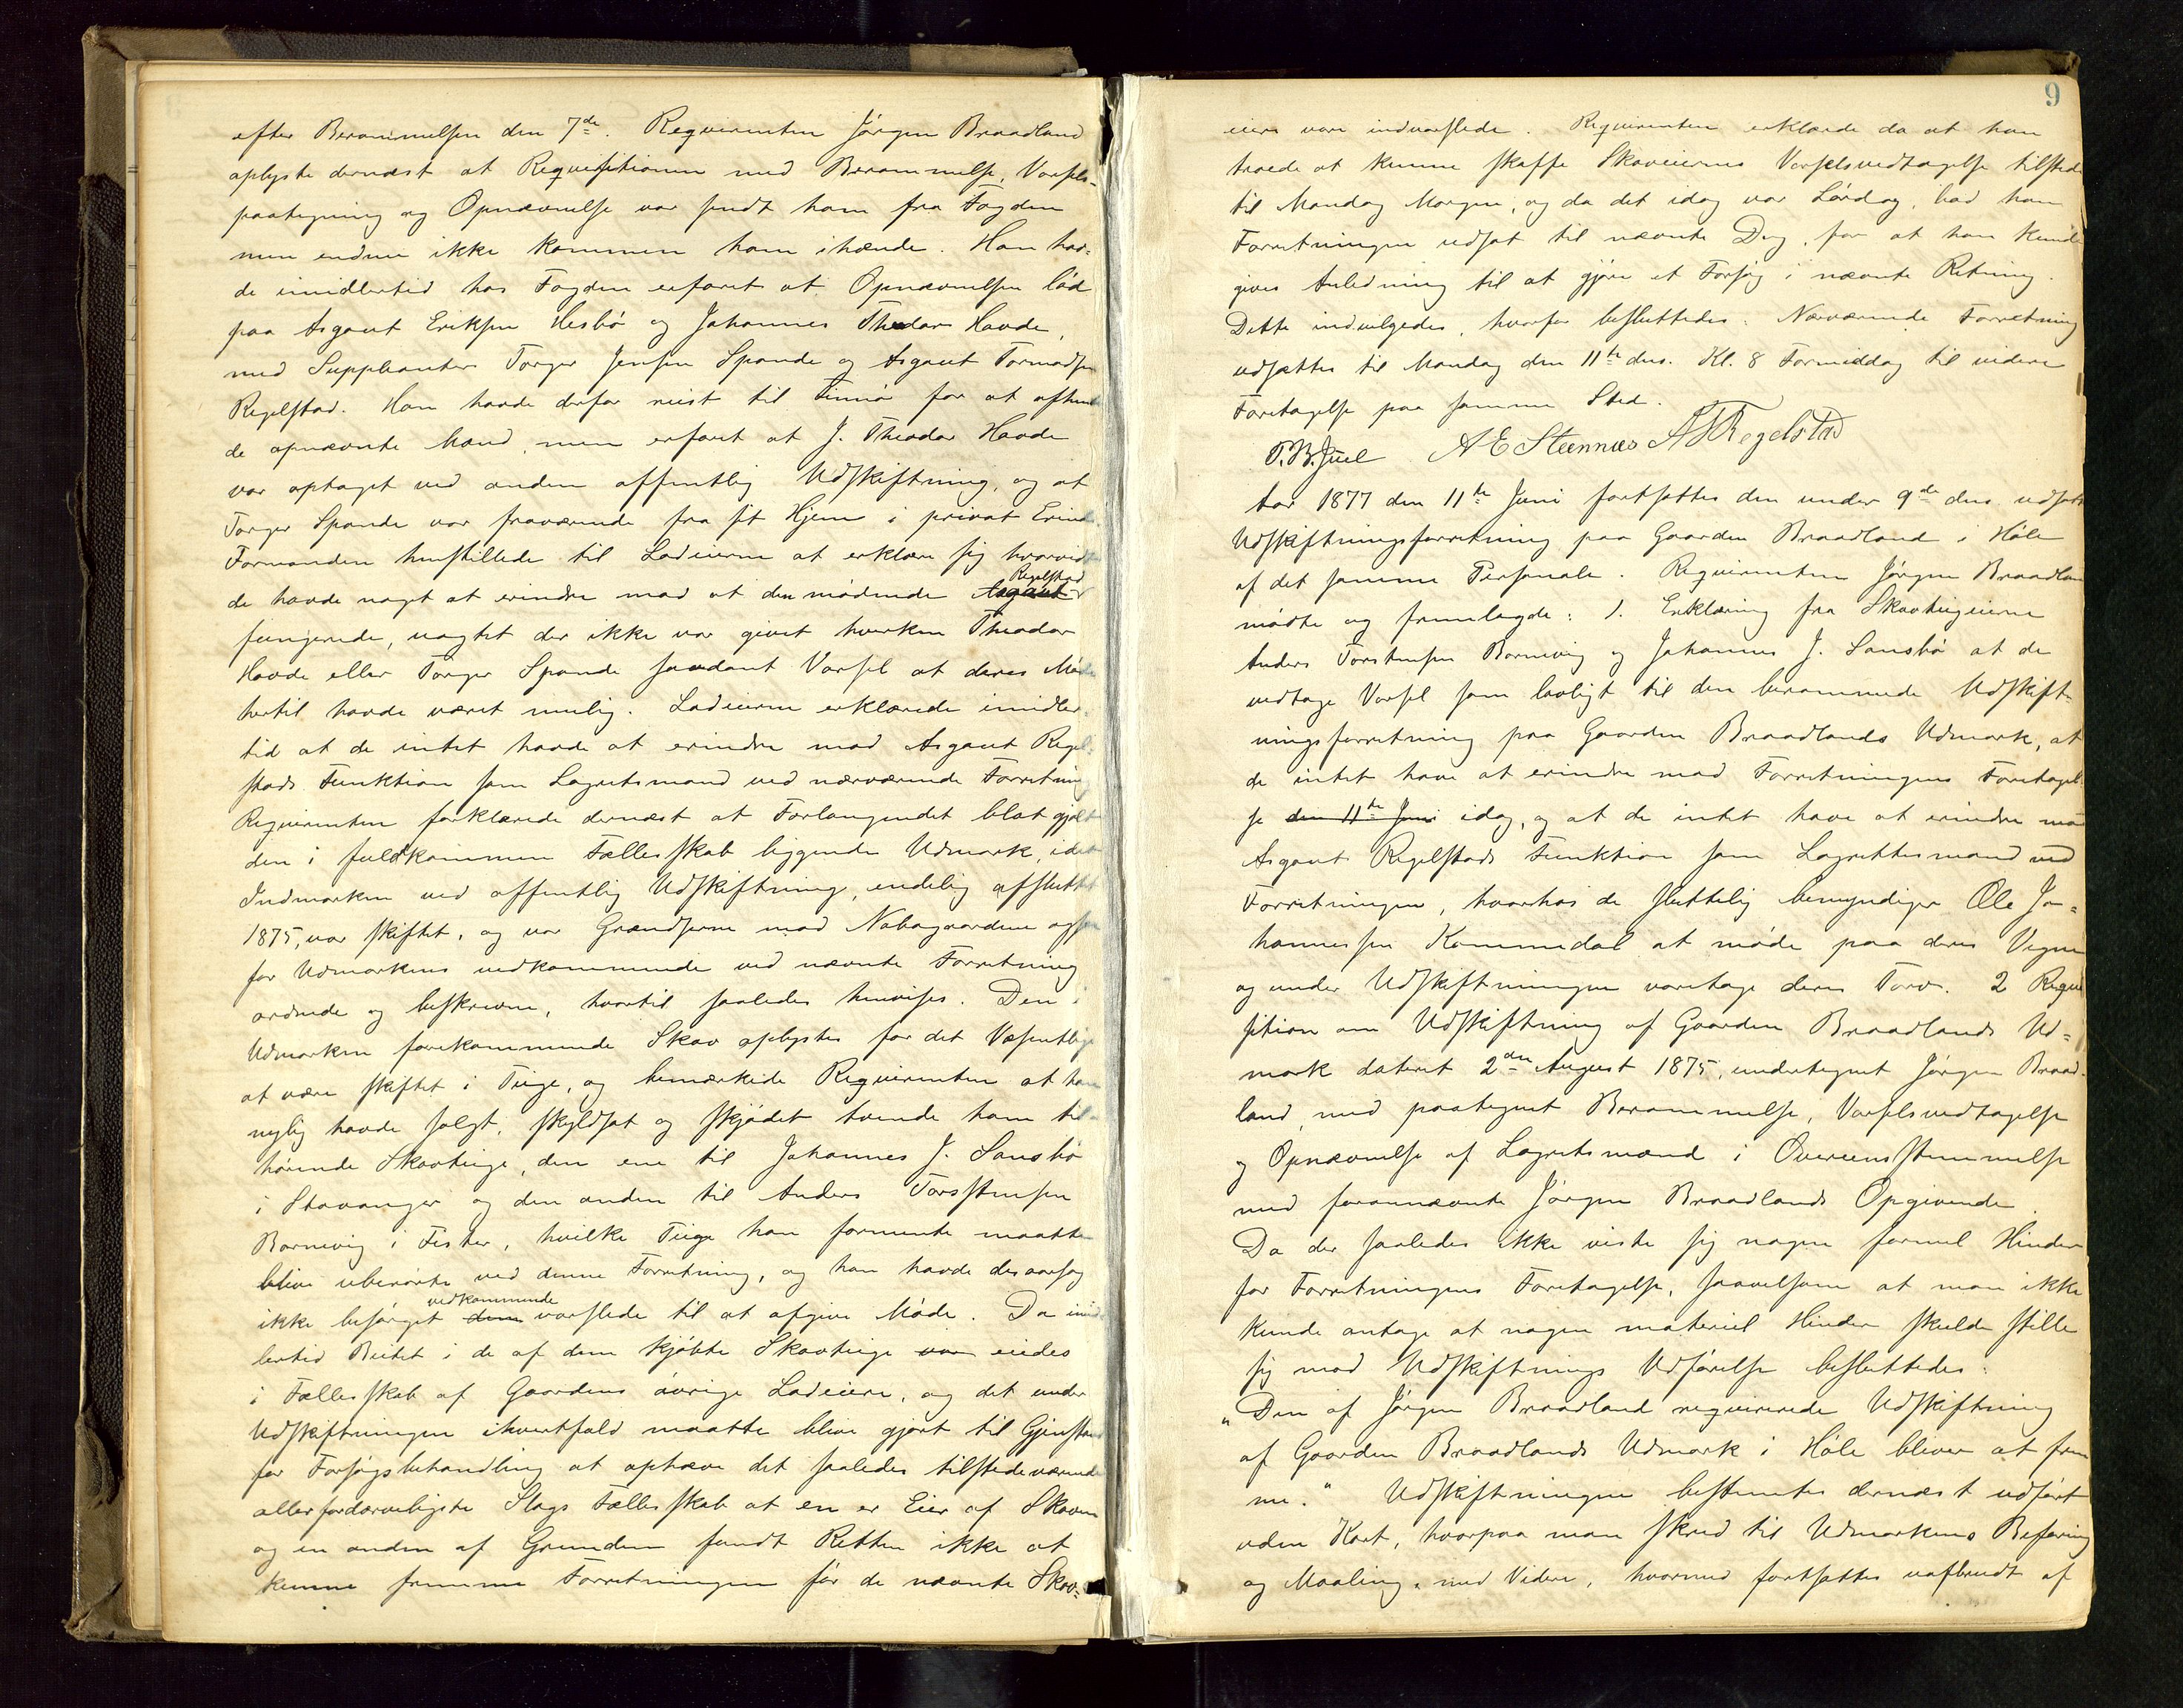 efter Berammelsen den 7de. Reqvirenten Jørgen Braadland
oplyste dernæst at Reqvisitionen med Berammelse, Varsels-
paategning og Opnævnelse var sendt ham fra Fogden
men endnu ikke kommen ham ihænde. Han hav-
de imidlertid hos Fogden erfaret at Opnævnelsen lød
paa Asgaut Eriksen Hesbø og Johannes Theodor Havde,
med Suppleanter Torger Jensen Spande og Asgaut Tormodsen
Regelstad. Han havde derfor reist til Finnø for at afhente
de opnævnte Mænd, men erfaret at J. Theodor Havde
var optaget ved anden offentlig Udskiftning, og at
Torger Spande var fraværende fra sit Hjem i privat Erinde
Formanden henstillede til Lodeierne at erklære sig hvorvidt
de havde noget at erindre mod at den mødende Asgaut Regelstad
fungerede, uagtet der ikke var givet hverken Theodor
Havde eller Torger Spande saadant Varsel at deres Møde
hertil havde været mulig. Lodeierne erklærede imidler-
tid at de intet havde at erindre mod Asgaut Regel-
stads Funktion som Lagretsmand ved nærværende Forretning
Reqvirenten forklarede dernæst at Forlangendet blot gjaldt
den i fuldkommen Fællesskab liggende Udmark, idet
Indmarken ved offentlig Udskiftning, endelig afsluttet
1875, var skiftet, og var Grændserne mod Nabogaardene ogsaa
for Udmarkens vedkommende ved nævnte Forretning
ordnede og beskrevne, hvortil saaledes henvises. Den i
Udmarken forekommende Skov oplystes for det Væsentlige
at være skiftet i Teige, og bemærkede Reqvirenten at han
nylig havde solgt, skyldsat og skjødet tvende ham til-
hørende Skovteige, den ene til Johannes J. Sansbø
i Stavanger og den anden til Anders Torstensen
Bornevig i Fister, hvilke Teige han formente maatte
blive uberørte ved denne Forretning, og han havde desaarsag
ikke besørget dem vedkommende varslede til at afgive Møde. Da imid-
lertid Beitet i de af dem kjøbte Skovteige var eiedes
i Fællesskab af Gaardens øvrige Lodeiere, og det under
Udskiftningen ihvertfald maatte blive gjort til Gjenstand
for Forsøgsbehandling at ophæve det saaledes tilstedeværende
allerfordærveligste Slags Fællesskab at en er Eier af Skoven
og en anden af Grunden fandt Retten ikke at
kunne fremme Forretningen før de nævnte Skov-
9
eiere vare indvarslede. Reqvirenten erklærede da at han
troede at kunne skaffe Skoveiernes Varselsvedtagelse tilstede
til Mandag Morgen, og da det idag var Lørdag, bad han
Forretningen udsat til nævnte Dag, for at han kunde
gives Anledning til at gjøre et Forsøg i nævnte Retning.
Dette indvilgedes, hvorfor besluttedes: Nærværende Forretning
udsættes til Mandag den 11te ds. Kl. 8 Formiddag til videre
Foretagelse paa samme Sted.
T.B. Juel A E Steennæs A T Regelstad
Aar 1877 den 11te Juni fortsattes den under 9de ds. udsatte
Udskiftningsforretning paa Gaarden Braadland i Høle
af det samme Personale. Reqvirenten Jørgen Braadland
mødte og fremlagde: 1. Erklæring fra Skovteigeierne
Anders Torstensen Bornevig og Johannes J. Sansbø at de
vedtage Varsel som lovligt til den berammede Udskift-
ningsforretning paa Gaarden Braadlands Udmark, at
de intet have at erindre mod Forretningens Foretagel-
se den 11te Juni idag, og at de intet have at erindre mod
Asgaut Regelstads Funktion som Lagrettesmand ved
Forretningen, hvorhos de sluttelig bemyndiger Ole Jo-
hannessen Kommedal at møde paa deres Vegne
og under Udskiftningen varetage deres Tarv. 2 Reqvi-
sition om Udskiftning af Gaarden Braadlands Ud-
mark dateret 2den August 1875, undertegnet Jørgen Braad-
land, med paategnet Berammelse, Varselsvedtagelse
og Opnævnelse af Lagretsmænd i Overensstemmelse
med forannævnte Jørgen Braadlands Opgivende.
Da der saaledes ikke viste sig nogen formel Hinder
for Forretningens Foretagelse, saavelsom at man ikke
kunde antage at nogen materiel Hinder skulde stille
sig mod Udskiftnings Udførelse besluttedes:
"Den af Jørgen Braadland reqvirerede Udskiftning
af Gaarden Braadlands Udmark i Høle bliver at frem-
me." Udskiftningen bestemtes dernæst udført
uden Kart, hvorpaa man skred til Udmarkens Befaring
og Maaling, med Videre, hvormed fortsattes uafbrudt af